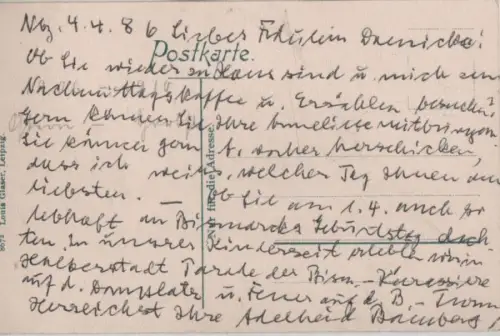 Nbg. 4.4.86 Liebes Fräulein
Postkarte.
Ob Sie wieder zu Haus sind u. mich zum
Nachmittagskaffee u. Erzählen besuchen?
Gern können Sie Ihre Anneliese mitbringen.
Sie können gern vorher herschicken,
dass ich weiss, welcher Tag Ihnen am
liebsten. Ob Sie am 1.4. auch so
lebhaft an Bismarcks Geburtstag dach
ten. In unserer Kinderzeit erlebte ich in
Halberstadt Parade der Bism.-Kürassiere
auf d. Domplatz u. Feuer auf d. B.-Turm
Herzlichst Ihre Adelheid Bamberg
Nur für die Adresse.
8075 Louis Glaser, Leipzig.